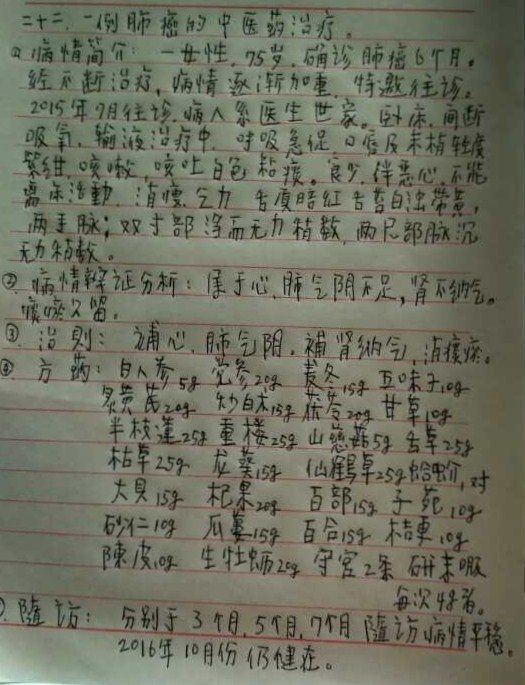 二十二、一例肺癌的中医药治疗。
①病情简介：一女性，75岁，确诊肺癌6个月。
经不断治疗，病情逐渐加重，特邀往诊。
2015年9月往诊，病人系医生世家。卧床，间断
吸氧，输液治疗中，呼吸急促，口唇及末梢轻度
紫绀，咳嗽，咳吐白色粘痰。食少，伴恶心，不能
离床活動，消瘦，乏力，舌质暗红舌苔白浊带黄，
两手脉；双寸部浮而无力稍数，两尺部脉沉
无力稍数。
②病情辩证分析：属于心、肺气阴不足，肾不纳气。
痰瘀久留。
③治则：補心、肺气阴，補肾纳气，消痰瘀。
④方药：白人参5g 党参20g 麦冬15g 五味子10g
炙黄芪20g 炒白术15g 茯苓20g 甘草10g
半枝莲25g 重楼25g 山慈菇5g 舌草25g
枯草25g 龙葵15g 仙鹤草25g 蛤蚧1对
大贝15g 杞果20g 百部15g 子苑10g
砂仁10g 瓜蒌15g 百合15g 桔更10g
陳皮10g 生牡蛎20g 守宫2条 研末服
每次4g
隨访：分别于3个月，5个月，7个月隨访病情平稳。
2016年10月份仍健在。